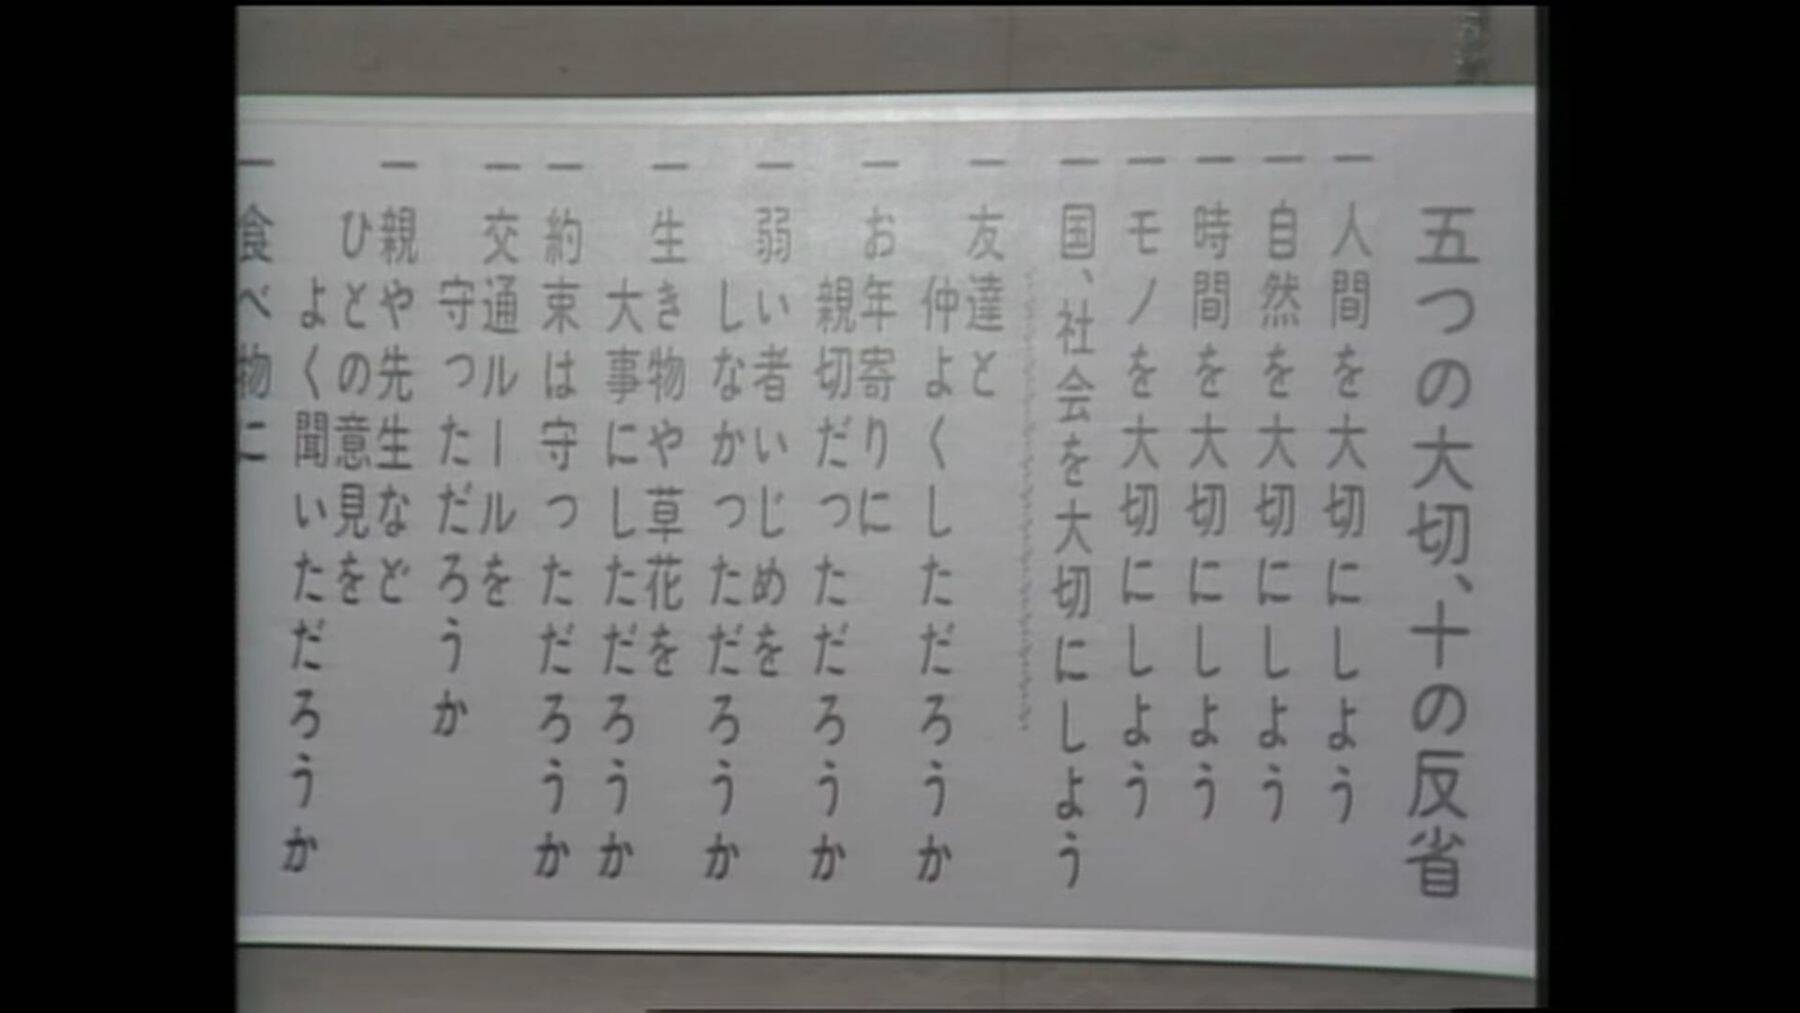 五つの大切、十の反省
一 人間を大切にしよう
一 自然を大切にしよう
一 時間を大切にしよう
一 モノを大切にしよう
一 国、社会を大切にしよう
一 友達と
仲よくしただろうか
一 お年寄りに
親切だつただろうか
一 弱い者いじめを
しなかつただろうか
一 生き物や草花を
大事にしただろうか
一 約束は守つただろうか
一 交通ルールを
守つただろうか
一 親や先生など
ひとの意見を
よく聞いただろうか
一 食べ物に